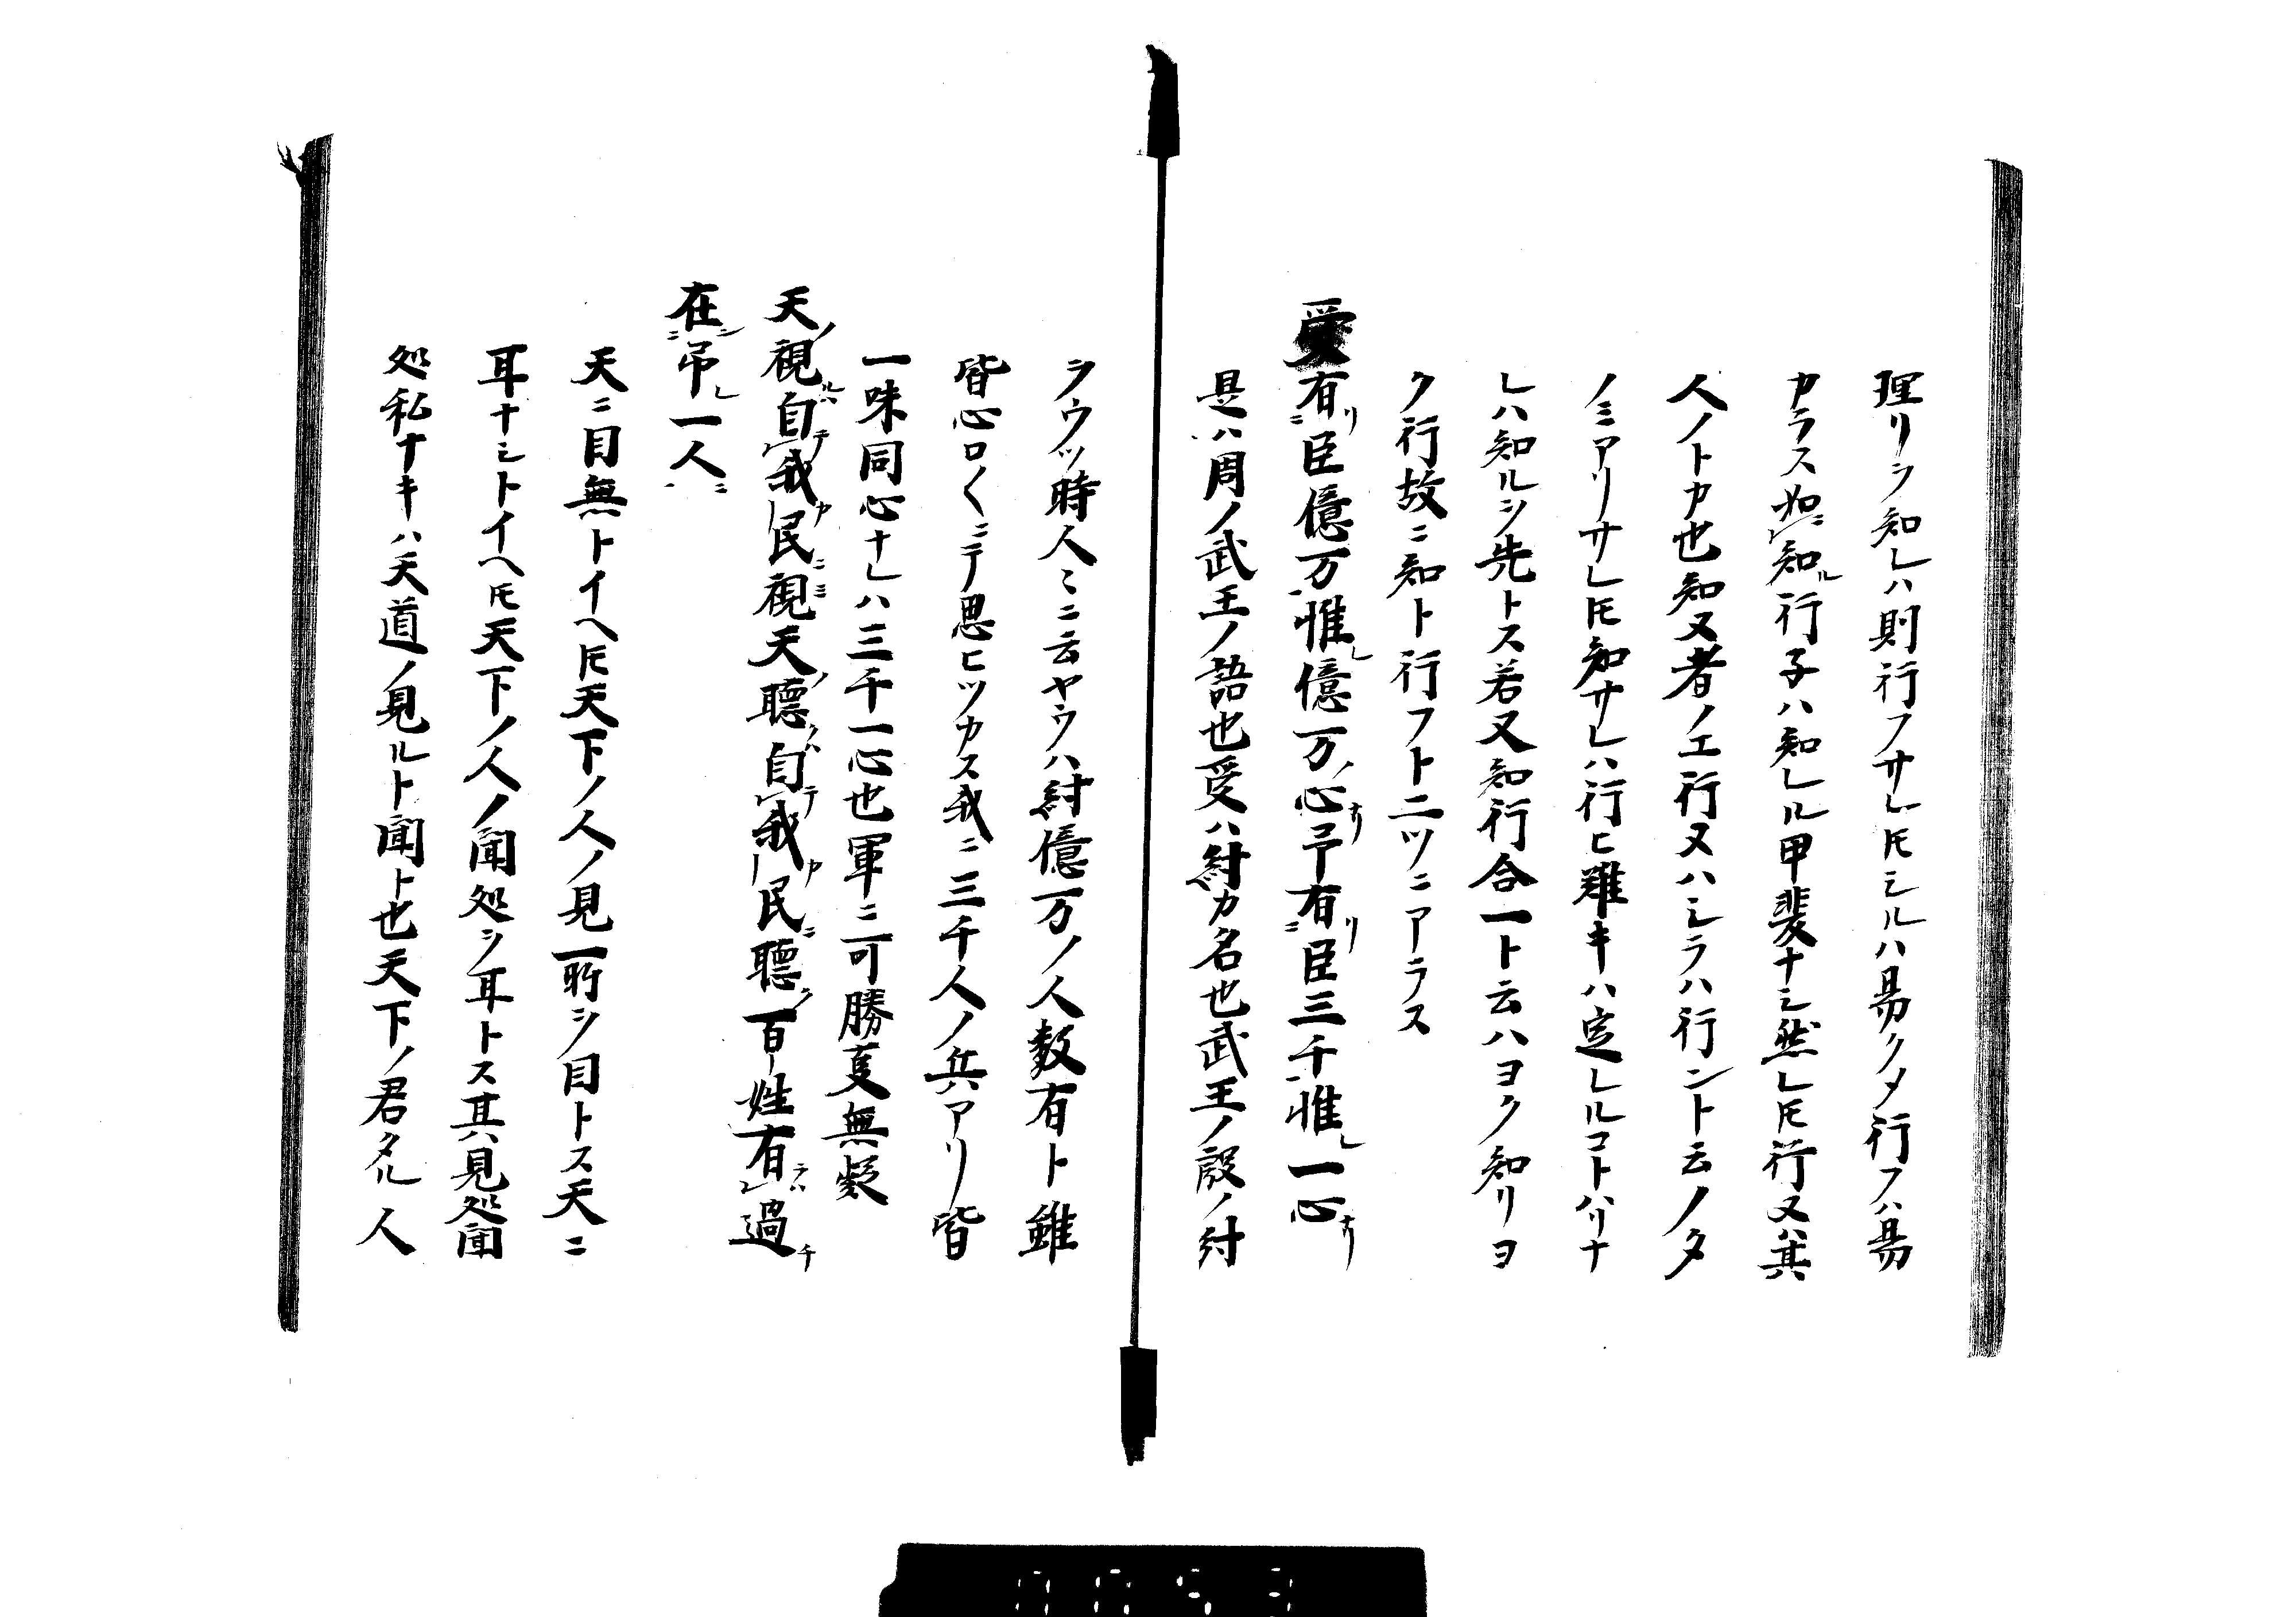 理リヲ知レハ則行フサレ𪜈シルハ易クメ行フハ易
カラス如知ル行子ハ知レル甲斐ナシ然レ𪜈行又ハ其
人ノトカ也知又者ノエ行又ハシラハ行ント云ノタ
ノミアリサレ𪜈知サレハ行ヒ難キハ定レルコトハリナ
レハ知ルヲ先トス若又知行合一ト云ハヨク知リヨ
ク行故ニ知ト行フト二ツニアラス
受有リ臣億万惟レ億万ノ心ナリ予有リ臣三千惟レ一心ナリ
是ハ周ノ武王ノ語也受ハ紂カ名也武王ノ殷ノ紂
ヲウツ時人ミニ云ヤウハ紂億万ノ人数有ト雖
皆心ロ〱ニテ思ヒツカス我ニ三千人ノ兵アリ皆
一味同心ナレハ三千一心也軍ニ可勝㕝無疑
天ノ視ルハ自テ我カ民ニ視ミ天ノ聴ハ自テ我カ民ニ聴ク百姓有ラハ過チ
在ニシ吊レ一人ニ
天ニ目無トイヘ𪜈天下ノ人ノ見所ヲ目トス天ニ
耳ナシトイヘ𪜈天下ノ人ノ聞処ヲ耳トス其見処聞
処私ナキハ天道ノ見ルト聞ト也天下ノ君タル人